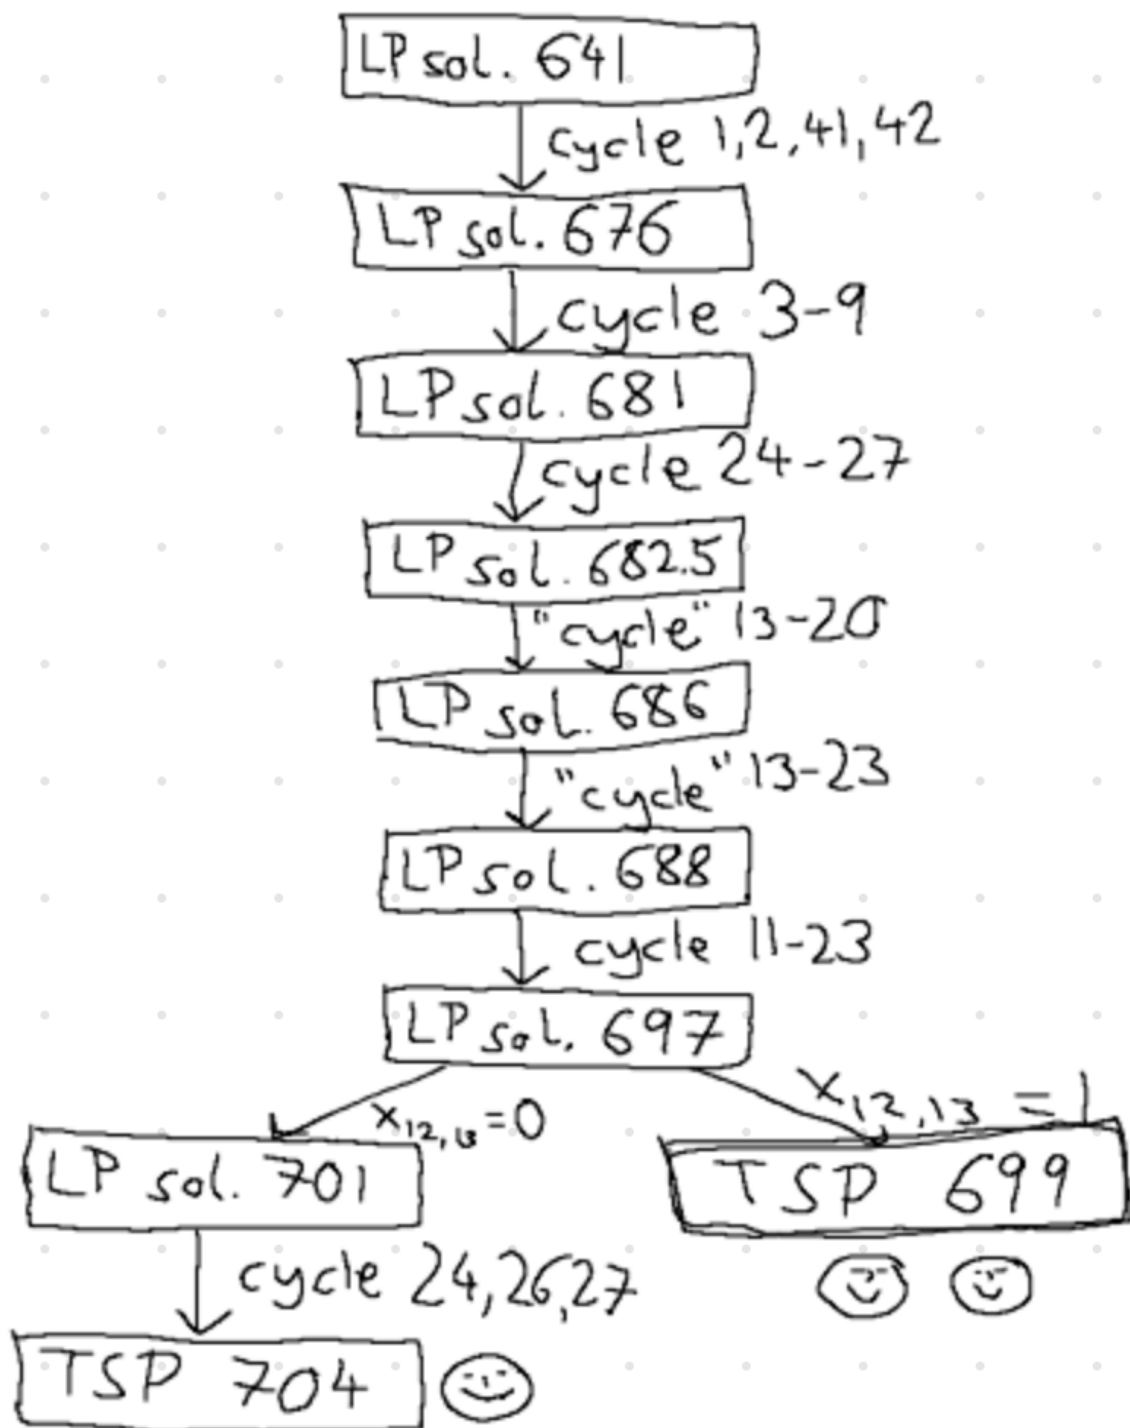 LP sol. 641
cycle 1,2,41,42
LP sol. 676
cycle 3-9
LP sol. 681
cycle 24-27
LP sol. 682.5
"cycle" 13-20
LP sol. 686
"cycle" 13-23
LP sol. 688
cycle 11-23
LP sol. 697
x12,13=0
x12,13 = 1
LP sol. 701
TSP 699
cycle 24,26,27
TSP 704